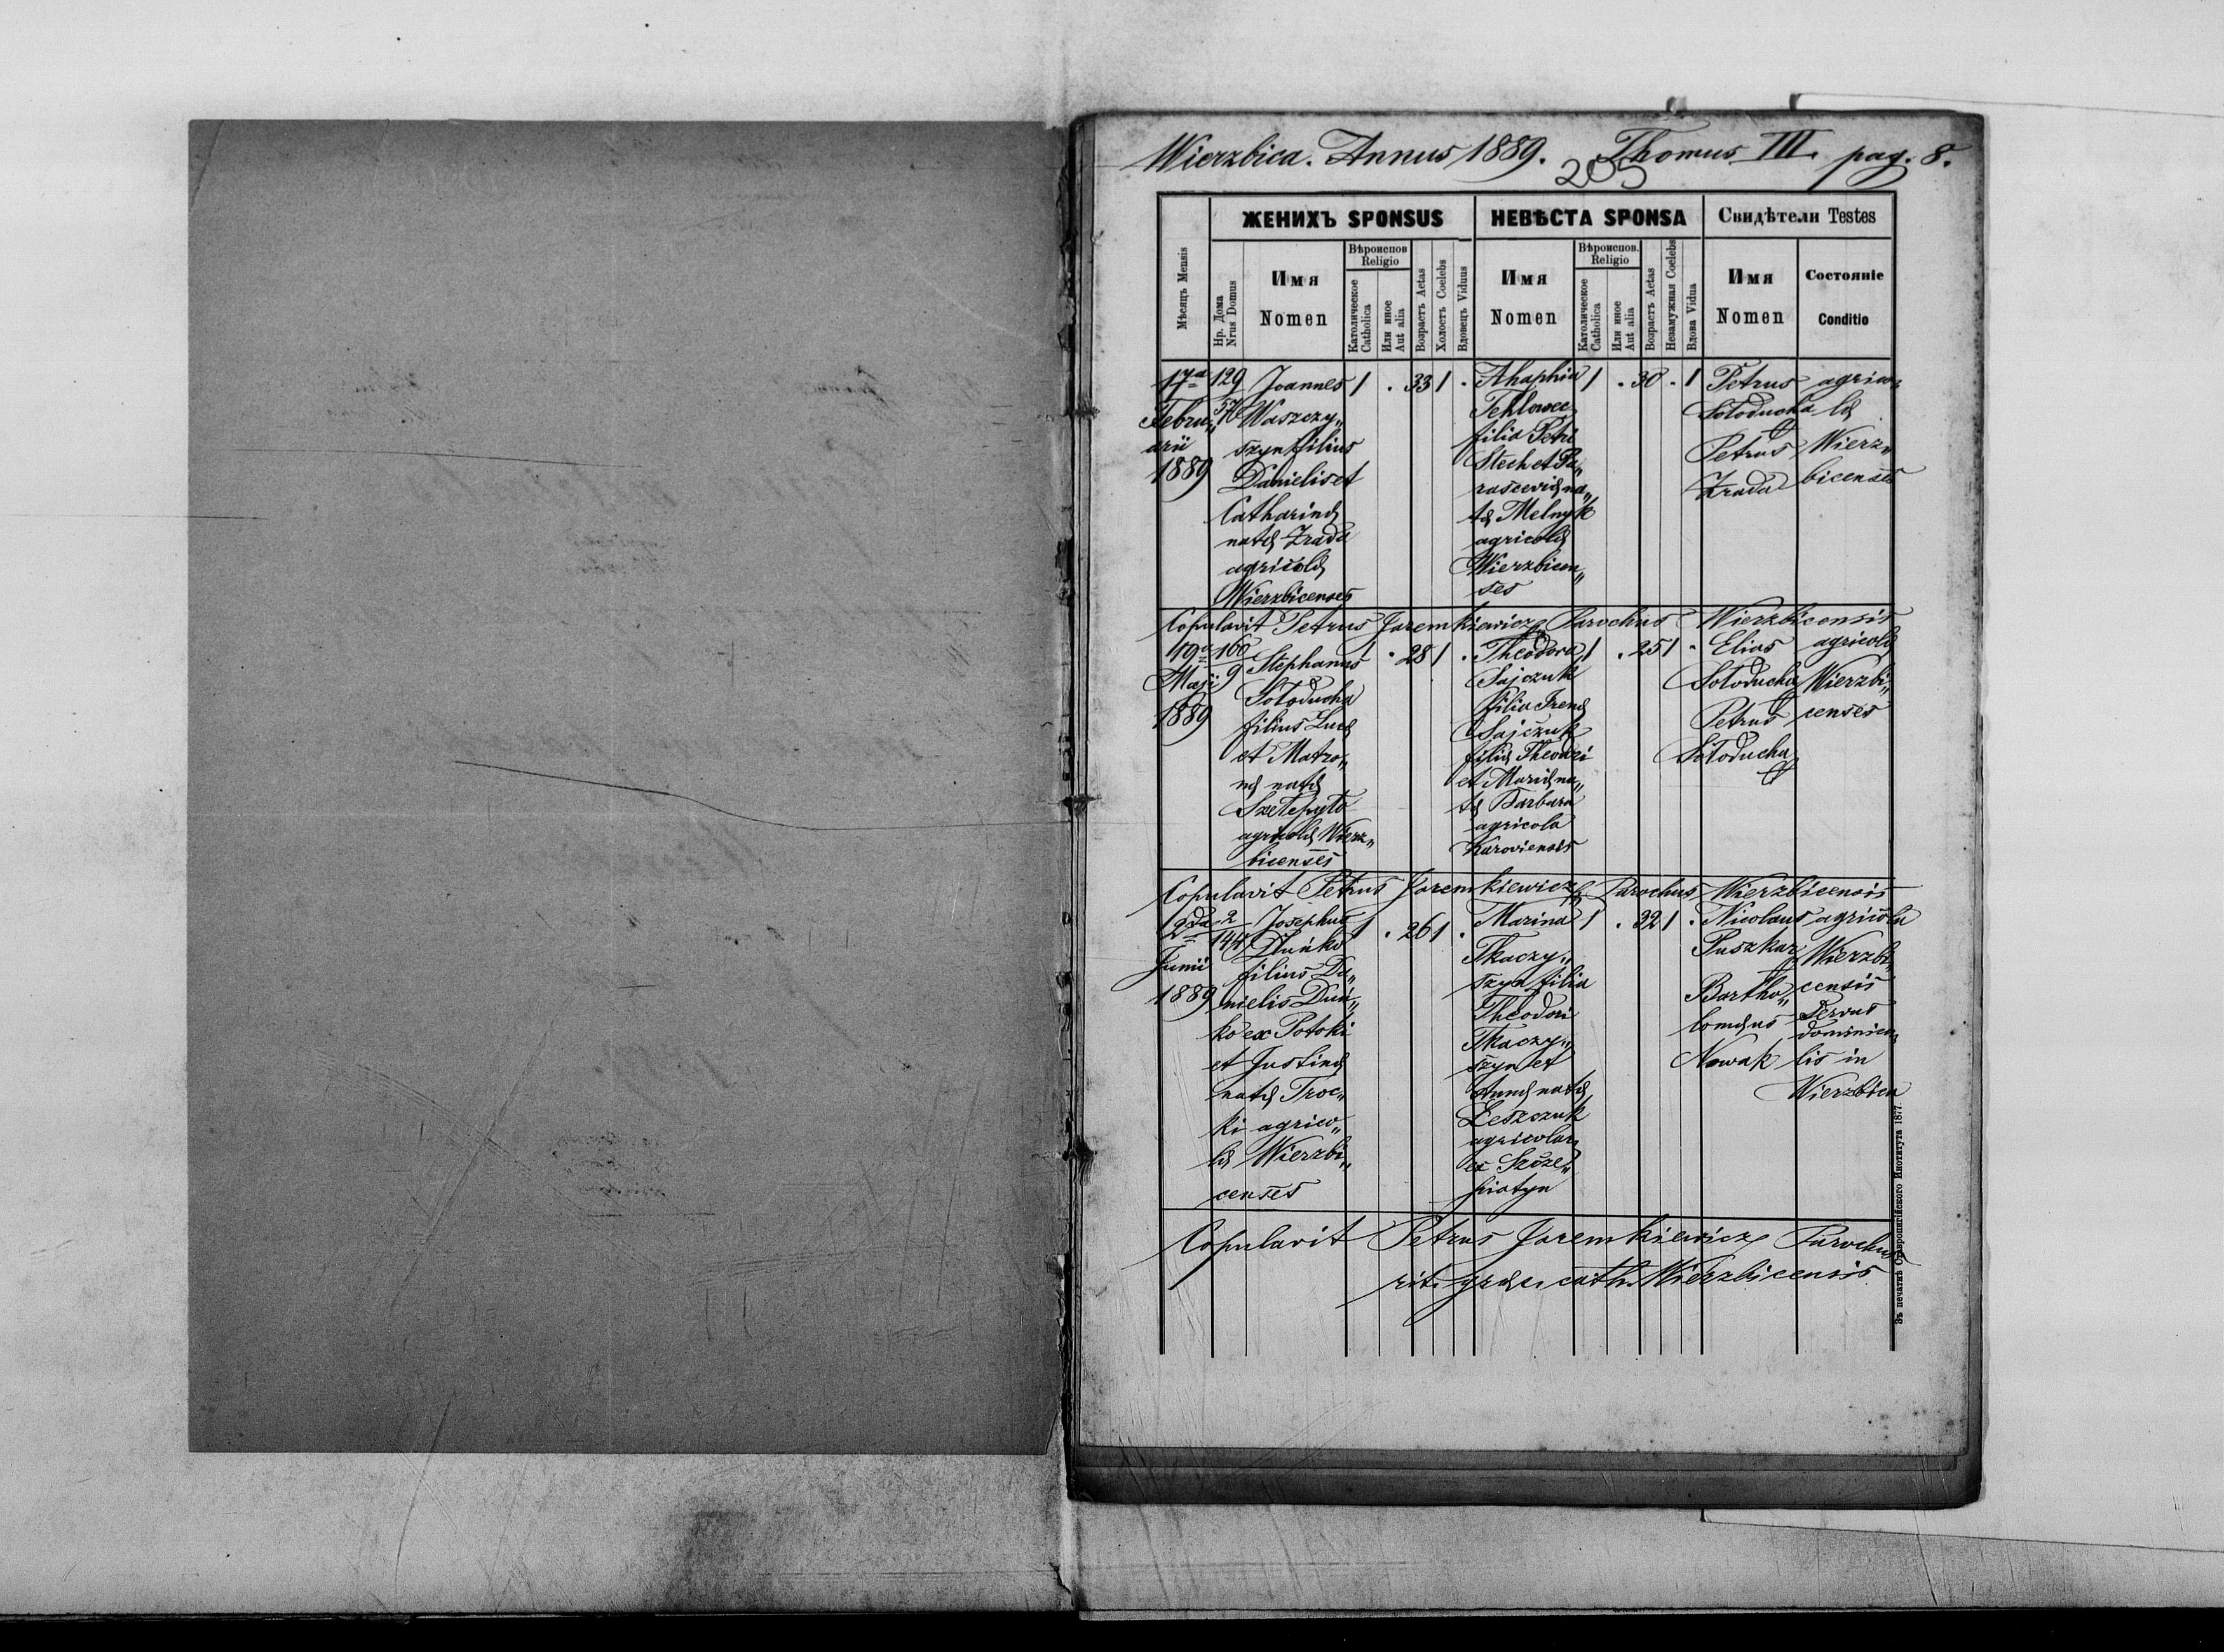 Wierzbica. Annus 1889. Thomus III. pag. 8.
205
Мѣсяцъ Mensis
ЖЕНИХЪ SPONSUS
НЕВѢСТА SPONSA
Свидѣтели Testes
Нр. Дома Nrus Domus
Имя Nomen
Вѣроиспов Religio
Католическое Catholica
Или иное Aut alia
Возрастъ Aetas
Холостъ Coelebs
Вдовецъ Viduus
Имя Nomen
Вѣроиспов. Religio
Католическое Catholica
Или иное Aut alia
Возрастъ Aetas
Незамужная Coelebs
Вдова Vidua
Имя Nomen
Состояніе Conditio
17a
Febru„
arii
1889
129
57
Joannes
Waszczy„
szyn filius
Danielis et
Catharinæ
natæ Zrada
agricolæ
Wierzbicenses
1 . 33 1 .
Ahaphia
filia Petri
Stech et Pa„
rasceviæ na„
tæ Melnyk
agricolæ
Wierzbicen„
ses
1 . 30 . 1
Petrus
Sołoducha
Petrus
Zrada
agrico„
læ
Wierz„
bicenses
Copulavit Petrus Jaremkiewicz Parochus Wierzbicensis
19a
Maji
1889
160
9
Stephanus
Sołoducha
filius Lucæ
et Matro„
næ natæ
agricolæ Wierz„
bicenses
1 . 28 1 .
Theodora
Sajczuk
filia Irenæ
Sajczuk
filiæ Theodori
et Mariæ na„
tæ Barbara
agricola
Karoviensis
1 . 25 1 .
Elias
Sołoducha
Petrus
Sołoducha
agricolæ
Wierzbi„
censes
Copulavit Petrus Jaremkiewicz Parochus Wierzbicensis
2da
Junii
1889
2
144
Josephus
Duńko
filius Da„
nielis Duń„
ko ex Potoki
et Justinæ
natæ Troc„
ki agrico„
læ Wierzbi„
censes
1 . 26 1 .
Marina
Tkaczy„
szyn filia
Theodori
Tkaczy„
szyn et
Annæ natæ
Leszczuk
agricolar
ex Szcze„
piatyn
1 . 32 1 .
Nicolaus
Puszkar
Bartho„
lomæus
Nowak
agricola
Wierzbi„
censis
Servus
dominica„
lis in
Wierzbica
Copulavit Petrus Jaremkiewicz Parochus
rit. græc. cath. Wierzbicensis.
Зъ печатнѣ Ставропигійского Института 1877.